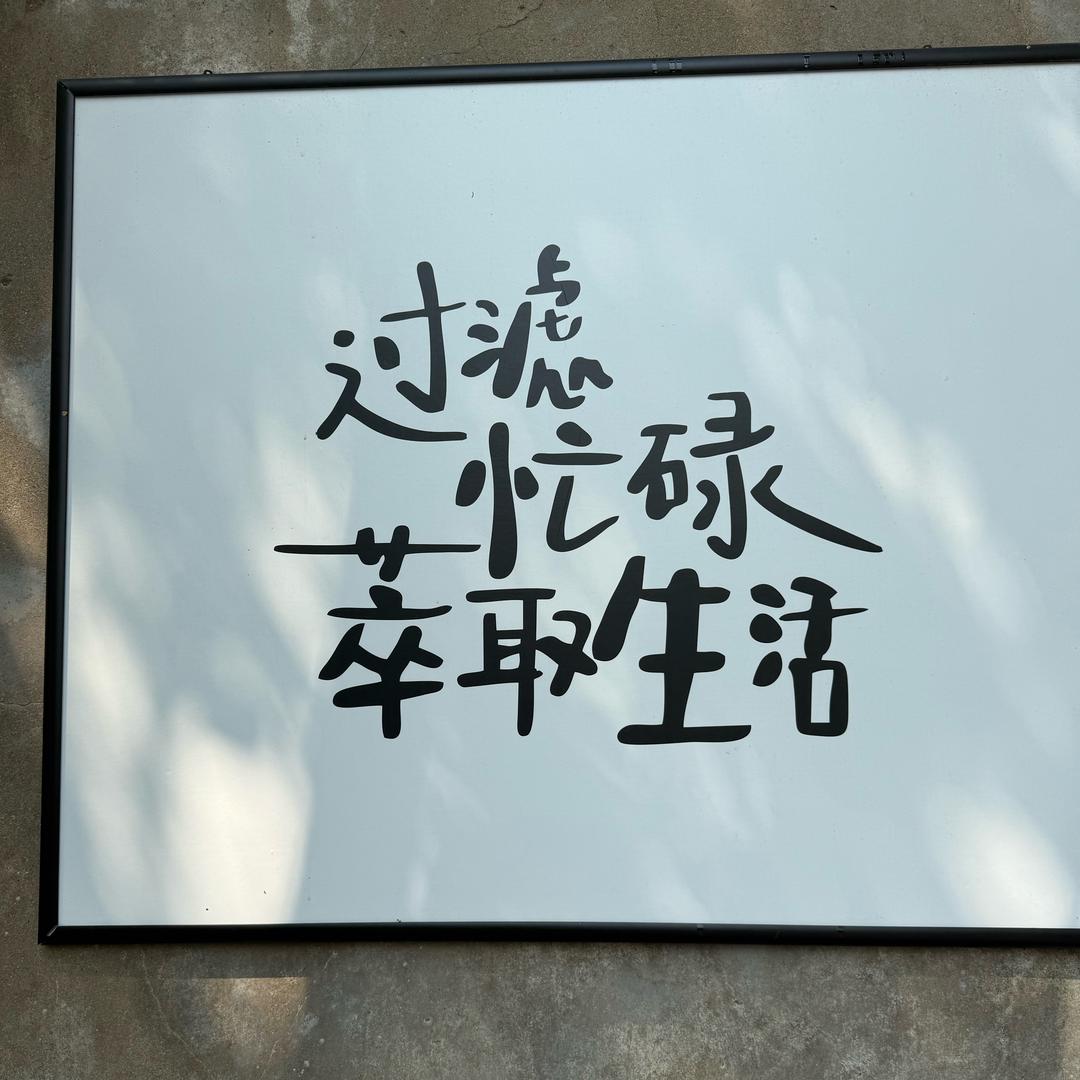 过滤
忙碌
萃取生活